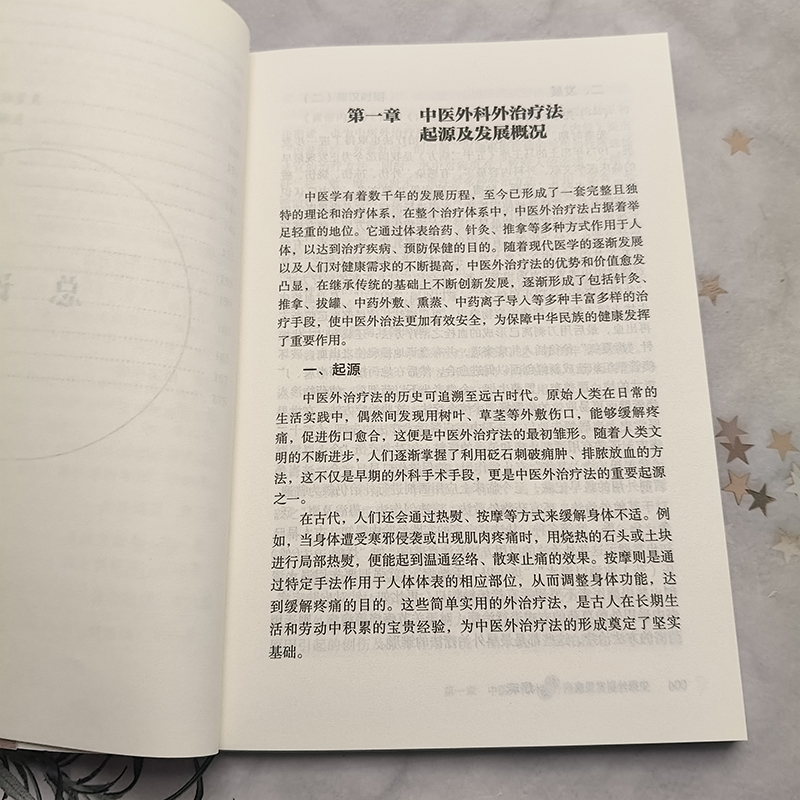 第一章　中医外科外治疗法
起源及发展概况
中医学有着数千年的发展历程，至今已形成了一套完整且独
特的理论和治疗体系，在整个治疗体系中，中医外治疗法占据着举
足轻重的地位。它通过体表给药、针灸、推拿等多种方式作用于人
体，以达到治疗疾病、预防保健的目的。随着现代医学的逐渐发展
以及人们对健康需求的不断提高，中医外治疗法的优势和价值愈发
凸显，在继承传统的基础上不断创新发展，逐渐形成了包括针灸、
推拿、拔罐、中药外敷、熏蒸、中药离子导入等多种丰富多样的治
疗手段，使中医外治疗法更加有效安全，为保障中华民族的健康发挥
了重要作用。
一、起源
中医外治疗法的历史可追溯至远古时代。原始人类在日常的
生活实践中，偶然间发现用树叶、草茎等外敷伤口，能够缓解疼
痛，促进伤口愈合，这便是中医外治疗法的最初雏形。随着人类文
明的不断进步，人们逐渐掌握了利用砭石刺破痈肿、排脓放血的方
法，这不仅是早期的外科手术手段，更是中医外治疗法的重要起源
之一。
在古代，人们还会通过热熨、按摩等方式来缓解身体不适。例
如，当身体遭受寒邪侵袭或出现肌肉疼痛时，用烧热的石头或土块
进行局部热熨，便能起到温通经络、散寒止痛的效果。按摩则是通
过特定手法作用于人体体表的相应部位，从而调整身体功能，达
到缓解疼痛的目的。这些简单实用的外治疗法，是古人在长期生
活和劳动中积累的宝贵经验，为中医外治疗法的形成奠定了坚实
基础。